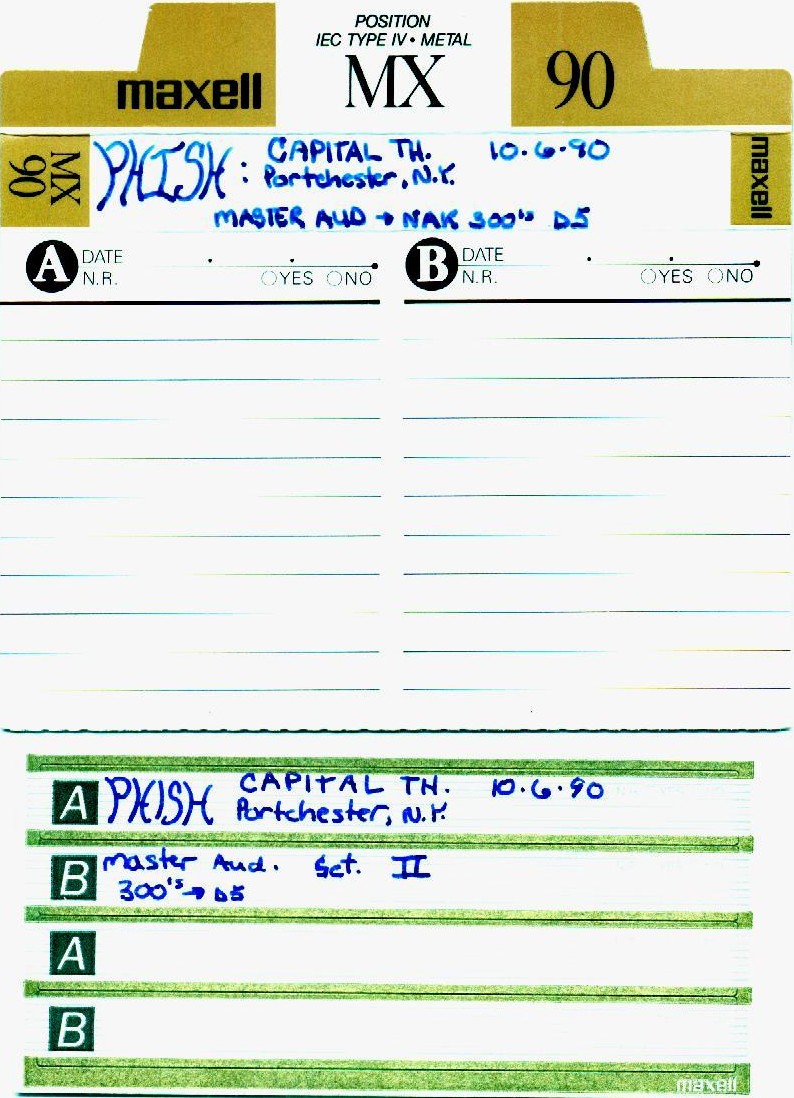 POSITION
IEC TYPE IV • METAL
maxell MX 90
MX 90 PHISH: CAPITAL TH. 10.6.90 maxell
Portchester, N.Y.
MASTER AUD → NAK 300's D5
A DATE . . B DATE . .
N.R. YES NO N.R. YES NO
A PHISH CAPITAL TH. 10.6.90
Portchester, N.Y.
B Master Aud. Set. II
300's → D5
A
B
maxell